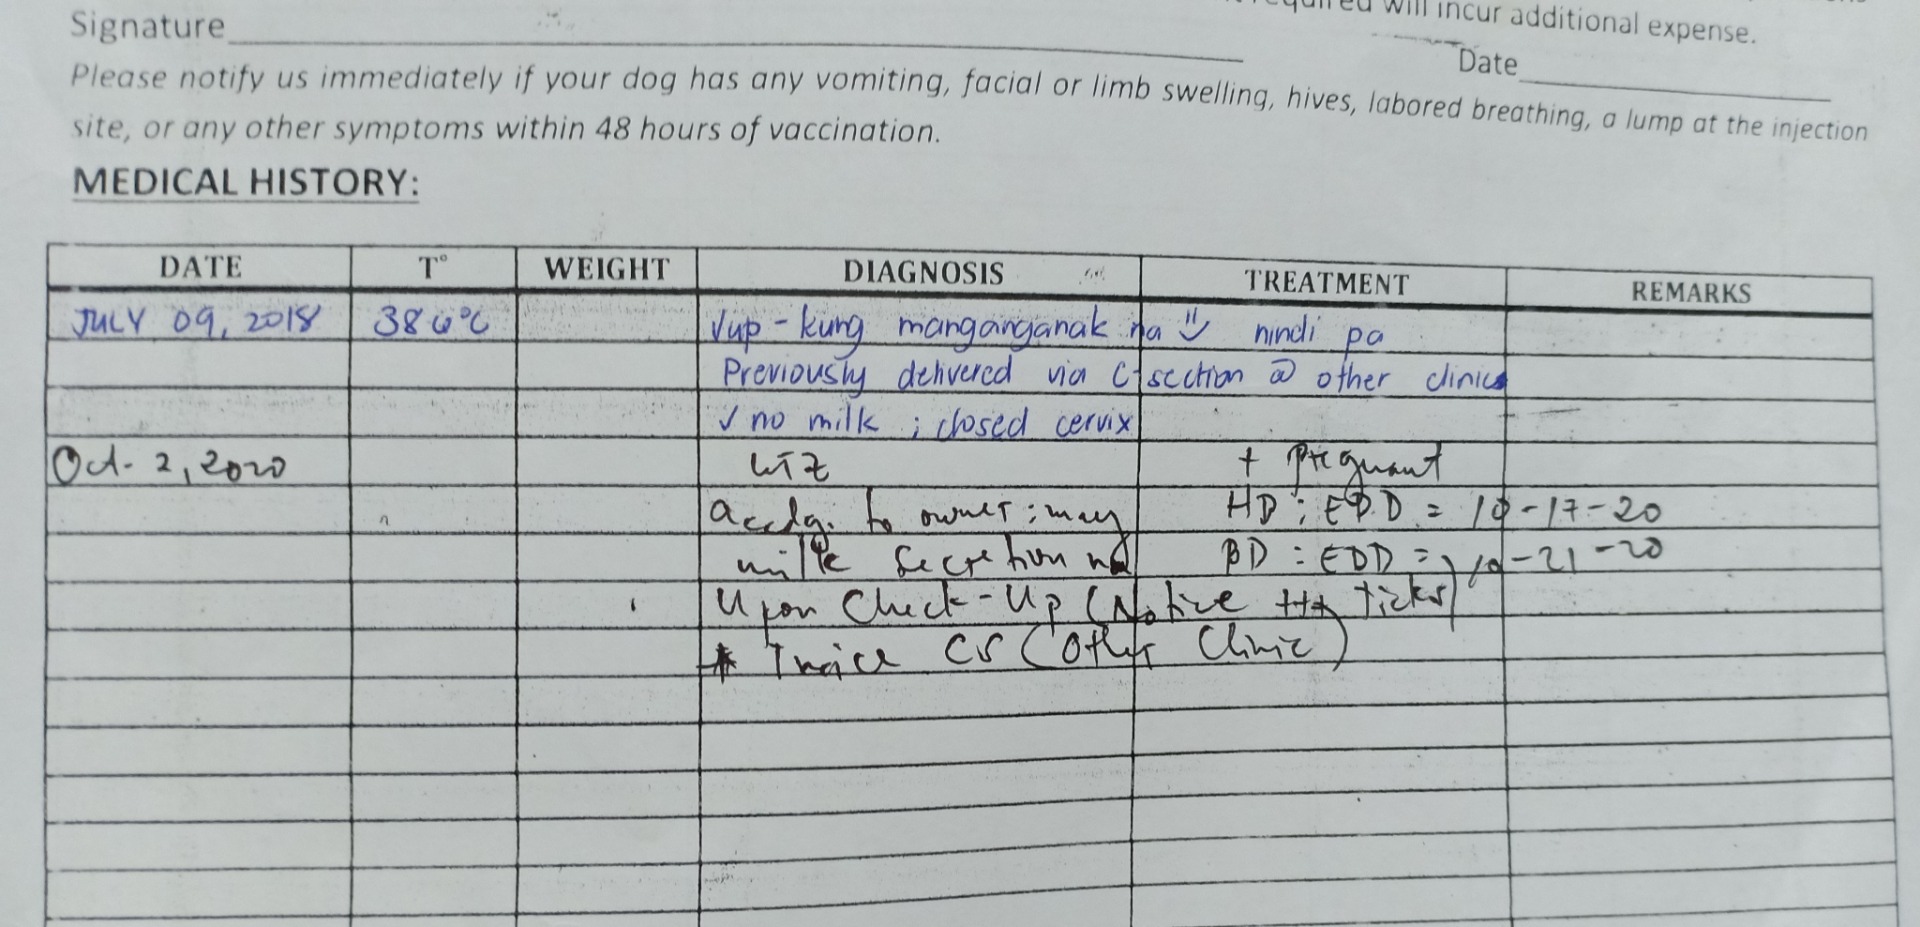 required will incur additional expense.
Signature
Date
Please notify us immediately if your dog has any vomiting, facial or limb swelling, hives, labored breathing, a lump at the injection
site, or any other symptoms within 48 hours of vaccination.
MEDICAL HISTORY:
DATE T° WEIGHT DIAGNOSIS TREATMENT REMARKS
JULY 09, 2018 °C √up - kung manganganak na hindi pa
Previously delivered via C-section @ other clinics
√ no milk ; closed cervix
Oct. 2, 2020 UTZ + Pregnant
accdg. to owner : may HD : EDD = 10-17-20
milk secretion na BD : EDD = 10-21-20
Upon Check-Up (Notice ticks)
* Twice CS (Other Clinic)